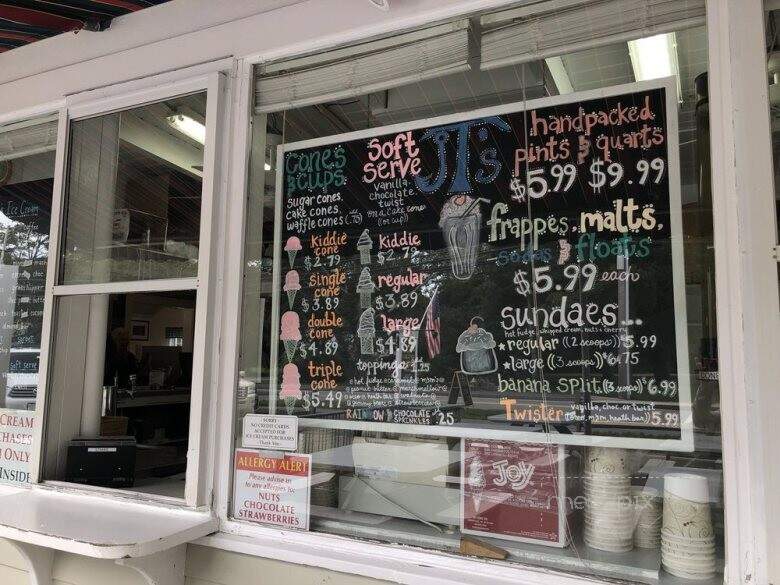 Ice Cream
soft serve
CREAM
ONLY
INSIDE
Cones
& cups
sugar cones,
cake cones,
waffle cones (.75)
kiddie
cone
$2.79
single
cone
$3.89
double
cone
$4.89
triple
cone
$5.49
Soft
serve
vanilla
chocolate
twist
on a cake cone
(or cup)
kiddie
$2.79
regular
$3.89
large
$4.89
toppings
RAINBOW & CHOCOLATE
SPRINKLES .25
JT's
handpacked
pints & quarts
$5.99 $9.99
frappes, malts,
sodas & floats
$5.99 each
sundaes...
hot fudge, whipped cream, nuts & cherry
*regular ((2 scoops)) $5.99
*large ((3 scoops)) $6.75
banana split ((3 scoops)) $6.99
Twister vanilla, choc. or twist
(oreo, m&m, heath bar) $5.99
SORRY
NO CREDIT CARDS
ACCEPTED FOR
ICE CREAM PURCHASES
Thank You
ALLERGY ALERT
Please advise us
to any allergies to:
NUTS
CHOCOLATE
STRAWBERRIES
JOY